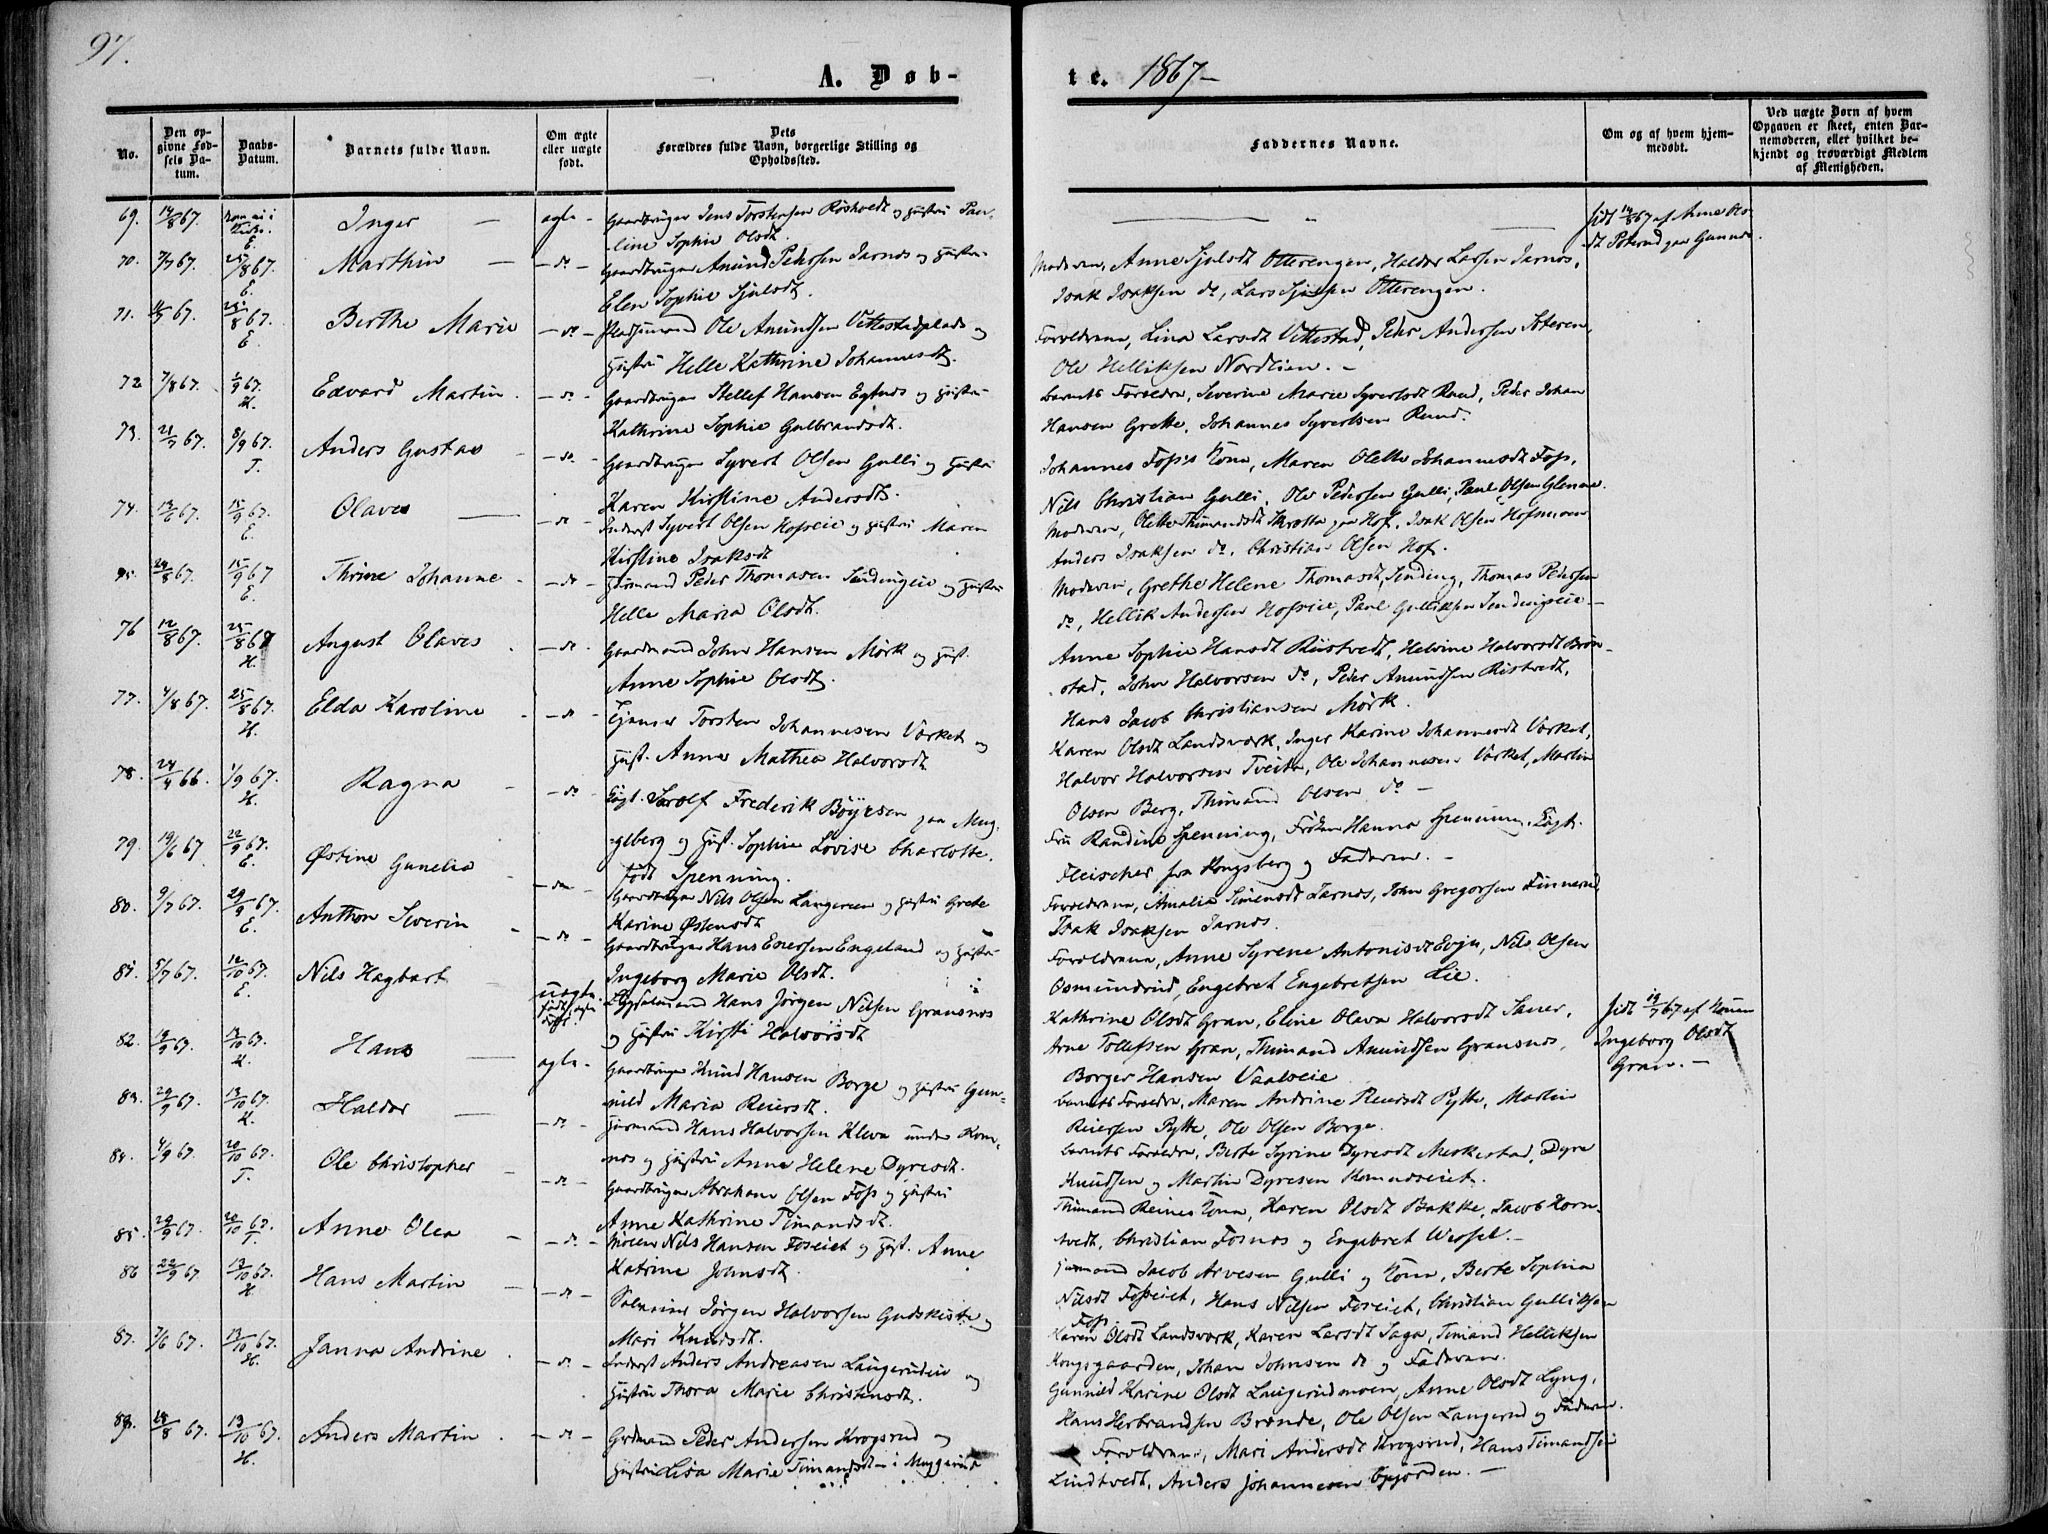 97.
A. Døb-
te. 1867-
No.
Den op-
givne Fød-
sels Da-
tum.
Daabs-
Datum.
Barnets fulde Navn.
Om ægte
eller uægte
født.
Dets
Forældres fulde Navn, borgerlige Stilling og
Opholdssted.
Faddernes Navne.
Om og af hvem hjem-
medøbt.
Ved uægte Børn af hvem
Opgaven er skeet, enten Bar-
nemoderen, eller hvilket be-
kjendt og troværdigt Medlem
af Menigheden.
69. 14/8 67. Inger — ægte - Gaardbruger Jens Torstensen Röshvedt og Hustru Pau-
line Sophie Olsdt.
70. 7/7 67. 25/8 67. E. Marthin — do - Gaardbruger Amund Pedersen Jarnæs og Hustru
Elen Sophie Sjulsdt.
Moderen, Anne Sjulsdt Otterengen, Haldor Larsen Jarnæs,
Isak Isaksen do, Lars Otterengen.
71. 67. 25/8 67. E. Berthe Marie - do - Pladsmand Ole Amundsen Vittestadplads og
Hustru Helle Kathrine Johannesdt.
Forældrene, Lina Larsdt Vittestad, Peder Andersen
Ole Helliksen Nordlien. -
72 7/8 67. 1/9 67. H. Edvard Martin. - do - Gaardbruger Stellef Hansen og Hustru
Kathrine Sophie Gulbrandsdt.
Barnets Forældre, Severine Marie Syvertsdt Ruud, Peder Johan
Hansen Grette, Johannes Syvertsen Ruud.
73. 21/7 67. 8/9 67. T. Anders Gustav - do - Gaardbruger Syvert Olsen Gulli og Hustru
Karen Kirstine Andersdt.
Johannes Foss's Kone, Maren Olette Johannesdt Foss,
Nils Christian Gulli, Ole Pedersen Gulli, Paul Olsen Glenne.
74. 13/6 67. 15/9 67. E. Olaves — - do - Inderst Syvert Olsen Hofseie og Hustru Maren
Kirstine Isaksdt
Moderen, Olette Thimandsdt paa Hof, Isak Olsen Hofsmoen
Anders Isaksen do, Christian Olsen Hof.
75. 24/8 67. 15/9 67 E. Thrine Johanne - - do - Huusmand Peder Thomasen Sindingeie og Hustru
Helle Maria Olsdt.
Moderen, Grethe Helene Thomasdt Sinding, Thomas Pedersen
do, Hellik Andersen Hofseie, Paul Gulliksen Sindingeie -
76 12/8 67. 25/8 67 H. August Olaves - do - Gaardmand John Hansen Mørk og Hust.
Anne Sophie Olsdt.
Anne Sophie Hansdt Riistvedt, Helvine Halvorsdt Brön-
stad, John Halvorsen do, Peder Amundsen Ristvedt,
Hans Jacob Christiansen Mörk.
77. 4/8 67. 25/8 67. H. Elda Karoline - do - Torsten Johannesen Værket og
Hust. Anne Mathea Halvorsdt
Karen Olsdt Landsværk, Inger Karine Johannesdt Værket,
Halvor Halvorsen Tveita, Ole Johannesen Værket, Martin
Olsen Berg, Thimand Olsen do -
78. 66. 1/9 67. H. Ragna - do - Frederik Böyesen paa Mug-
gelberg og Hust. Sophie Lovise Charlotte.
født Spenning.
Fru Randine Spenning, Frøken Hanna Spenning,
Fleischer fra Kongsberg og Faderen. -
79. 19/6 67 22/9 67. E. Østine Gunelia - do - Gaardbruger Nils Olsen Langereen og Hustru Grete
Karine Østensdt
Forældrene, Amalie Simensdt Jarnæs, John Gregorsen Finnerud
Isak Isaksen Jarnæs.
80. 9/7 67. 29/9 67. E. Anthon Severin - - do - Gaardbruger Hans Engeland og Hustru
Ingeborg Marie Olsdt.
Forældrene, Anne Syrene Antonisdt Evju, Nils Olsen
Osmundrud, Engebret Engebretsen Lie.
81. 5/7 67. 12/10 67. E. Nils Hagbart - uægte Hans Jörgen Nilsen Gransnæs
og Hustru Kirsti Halvorsdt
Kathrine Olsdt Gran, Eline Olava Halvorsdt Saner,
Arne Tollefsen Gran, Thimand Amundsen Gransnæs,
Borger Hansen
jfdt 19/7 67 af Konen
Ingeborg Olsdt
Gran. -
82. 67. 13/10 67. H. Hans — ægte - Gaardbruger Knud Hansen Borge og Hustru Gun-
nild Maria Reiersdt.
Barnets Forældre, Maren Andrine Reiersdt Pytte, Martin
Reiersen Pytte, Ole Olsen Borge.
83. 29/9 67. 13/10 67. H. Haldor — - do - Huusmand Hans Halvorsen Kleva under Kom-
næs og Hustru Anne Helene Dyresdt.
Barnets Forældre, Berte Syrine Dyresdt Dyre
Knudsen og Martin Dyresen Komnæseiet.
84. 4/9 67. 20/10 67. T. Ole Christopher - - do - Gaardbruger Abraham Olsen Foss og Hustru
Anne Kathrine Timandsdt.
Thimand Reines Kone, Karen Olsdt Bakke, Jacob Korn-
tvedt, Christian Fosnæs og Engebret Wessel. -
85. 29/9 67. 20/10 67. T. Anne Olea - - do - Nils Hansen Foseiet og Hust. Anne
Katrine Johnsdt.
Jacob Arvesen Gulli og Kone, Berte Sophia
Nilsdt Fosseiet, Hans Nilsen Foseiet, Christian Gulliksen
Foss.
86 22/9 67. 13/10 67. H Hans Martin - - do - Jörgen Halvorsen Gudskiste og
Mari Knudsdt.
Karen Olsdt Landsværk, Karen Larsdt Saga, Timand Helliksen
Kongsgaarden, Johan Johnsen do og Faderen.
87. 7/6 67. 13/10 67. H. Janna Andrine - do - Inderst Anders Andreasen Langerudeie og
Hustru Thora Marie Christensdt.
Gunnild Karine Olsdt Langerudmoen, Anne Olsdt Lyng,
Hans Herbrandsen Brønde, Ole Olsen Langerud og Faderen.
88. 28/8 67. 13/10 67. H. Anders Martin - do - Grdmand Peder Andersen Krogsrud og
Hustru Lisa Marie Timandsdt i Muggerud
Forældrene, Mari Andersdt Krogsrud, Hans Timandsen
Lindtvedt, Anders Johannesen Gjorden. -